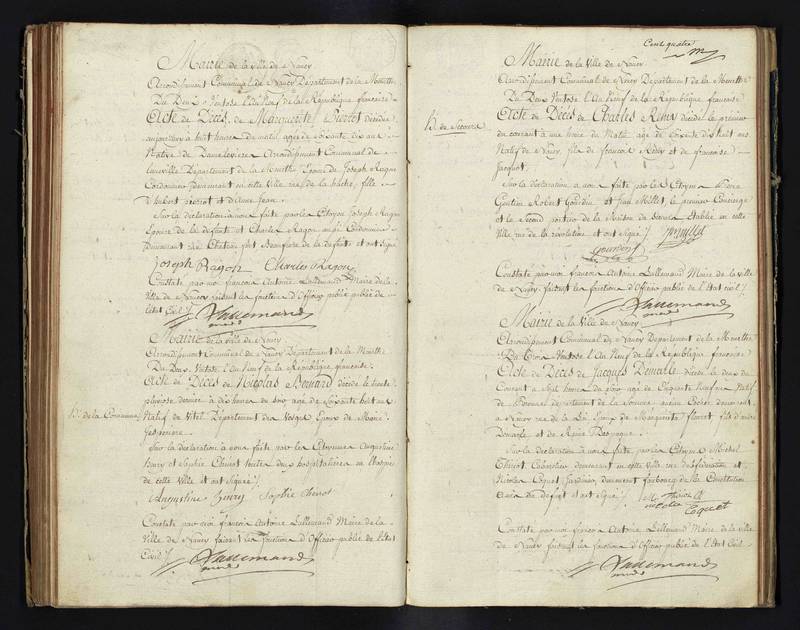 Mairie de la Ville de Nancy
Arrondissement Communal de Nancy Département de la Meurthe
Du Deux Ventose l'an neuf de la République française
Acte de Décès de Marguerite Pierrot décédée
aujourd'hui à huit heures du matin agée de soixante dix ans
Native de Damelevieres Arrondissement Communal de
Luneville Département de la Meurthe Epouse de Joseph Ragon
Cordonnier demeurant en cette Ville rue de la hache, fille
d'hubert pierrot et d'Anne Jean
Sur la déclaration à nous faite par les Citoyens Joseph Ragon
Epoux de la défunte et Charles Ragon aussi Cordonnier
Demeurant rue Chateau fils de la défunte et ont signé
Joseph Ragon Charles Ragon
Constaté par moi françois Antoine Lallemand Maire de la
Ville de Nancy faisant les fonctions d'Officier public de
l'état Civil
Lallemand
maire
Mairie de la Ville de Nancy
Arrondissement Communal de Nancy Département de la Meurthe
Du Deux Ventose l'an Neuf de la République française
Acte de Décès de Nicolas Bernard décédé le trente
pluviose dernier à dix heures du soir agé de soixante huit ans
H.ce de la Commune
Natif de Vitel Département des Vosges Epoux de Marie
Sur la déclaration à nous faite par les Citoyennes Augustine
henry et Sophie Chenot toutes deux hospitalières en l'hospice
de cette Ville et ont signé
Augustine henry Sophie Chenot
Constaté par moi françois Antoine Lallemand Maire de la
Ville de Nancy faisant les fonctions d'Officier public de l'état
Civil
Lallemand
maire
Cent quatre
Mairie de la Ville de Nancy
Arrondissement Communal de Nancy Département de la Meurthe
Du Deux Ventose l'an Neuf de la République française
Acte de Décès de Charles Remy décédé le premier
H. de Secours
du courant à une heure du Matin agé de soixante dix huit ans
Natif de Nancy, fils de francois Remy et de francoise
Jacquot
Sur la déclaration à nous faite par les Citoyens
Robert Gourdin et Jean Millet, le premier Concierge
et le Second portier de la Maison de Secours établie en cette
Ville rue de la révolution et ont signé
Gourdin
Constaté par moi françois Antoine Lallemand Maire de la Ville
de Nancy, faisant les fonctions d'Officier public de l'état Civil
Lallemand
maire
Mairie de la Ville de Nancy
Arrondissement Communal de Nancy Département de la Meurthe
Du Trois Ventose l'an Neuf de la République française
Acte de Décès de Jacques Demarle décédé le deux du
Courant à sept heures du soir agé de Cinquante Neuf ans Natif
de Département de la Somme Cocher demeurant
à Nancy rue de la Epoux de Marguerite fils d'
Demarle et de Reine
Sur la déclaration à nous faite par les Citoyens Michel
Thiriot demeurant en cette Ville rue et
Nicolas Coquet Jardinier, demeurant faubourg de la Constitution
du défunt et ont signé
M Thiriot
nicolas Coquet
Constaté par moi françois Antoine Lallemand Maire de la Ville
de Nancy faisant les fonctions d'Officier public de l'état Civil
Lallemand
maire